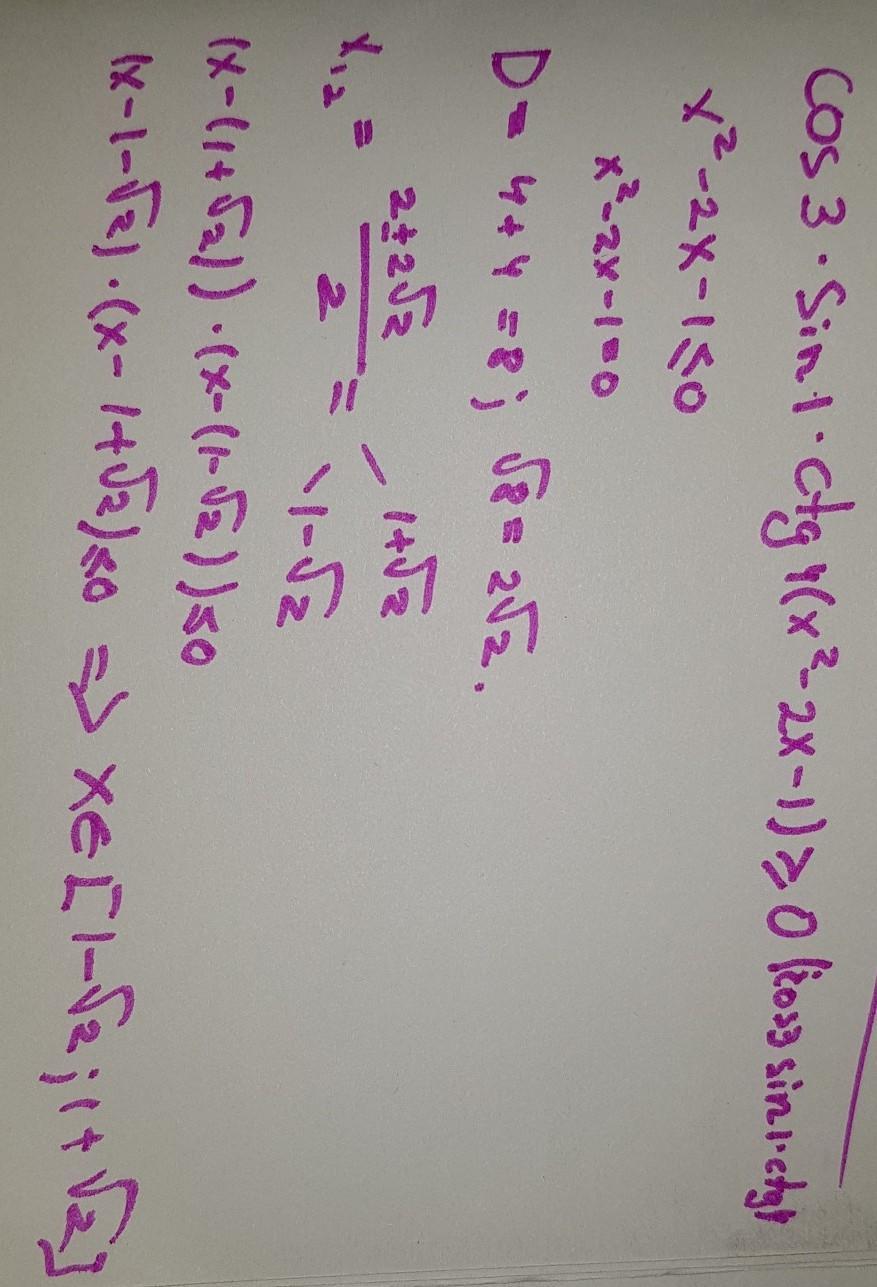 Cos 3 · Sin 1 · ctg 4(x² - 2x - 1) ≥ 0 |:cos3 sin1·ctg4
x² - 2x - 1 ≤ 0
x² - 2x - 1 = 0
D = 4 + 4 = 8; √8 = 2√2.
x₁,₂ = (2 ± 2√2)/2 = / 1+√2 \ 1-√2
(x - (1 + √2)) · (x - (1 - √2)) ≤ 0
(x - 1 - √2) · (x - 1 + √2) ≤ 0 => x ∈ [1 - √2; 1 + √2]